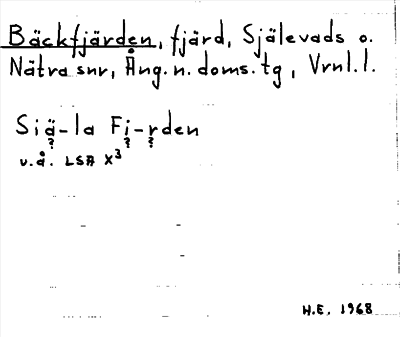 Bäckfjärden, fjärd, Själevads o.
Nätra snr, Ång. n. doms. tg, Vrnl. l.
Siä-la Fi-rden
? ? ?
u. å. LSA X³
H.E. 1968